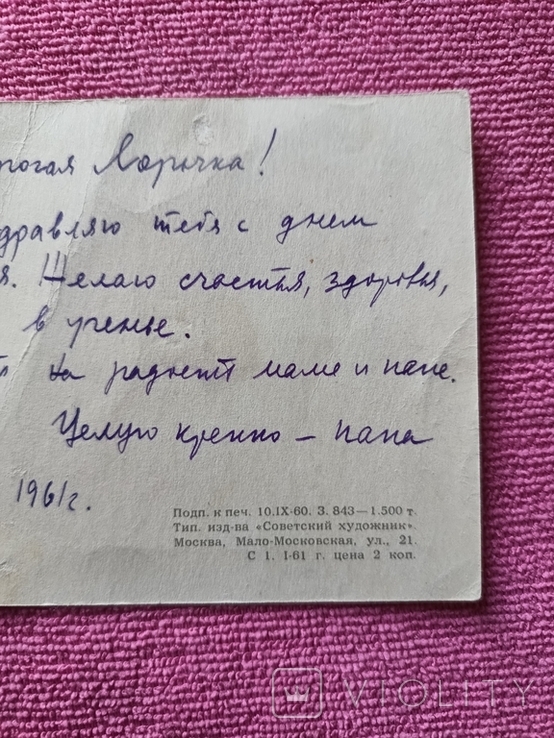 рогая Лорочка!
дравляю тебя с днем
я. Желаю счастья, здоровья,
в ученье.
на радость маме и папе.
Целую крепко – папа
1961г.
Подп. к печ. 10.IX-60. З. 843—1.500 т.
Тип. изд-ва «Советский художник».
Москва, Мало-Московская, ул., 21.
С 1. I-61 г. цена 2 коп.
VIOLITY